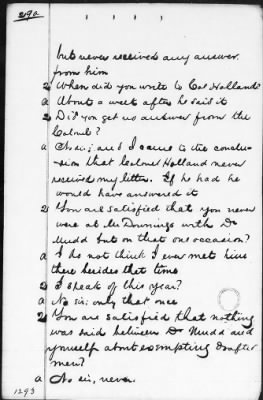 219a
but never received any answer
from him
Q When did you write to Col Holland?
a About a week after he said it
Q Did you get no answer from the
Colonel?
a No sir; and I came to the conclu-
sion that Colonel Holland never
received my letter. If he had he
would have answered it
Q You are satisfied that you never
were at Mr Downings with Dr
Mudd but on that one occasion?
a I do not think I ever met him
there besides that time
Q I speak of this year?
a No sir; only that once
Q You are satisfied that nothing
was said between Dr Mudd and
yourself about exempting drafted
men?
a No sir, never.
1293